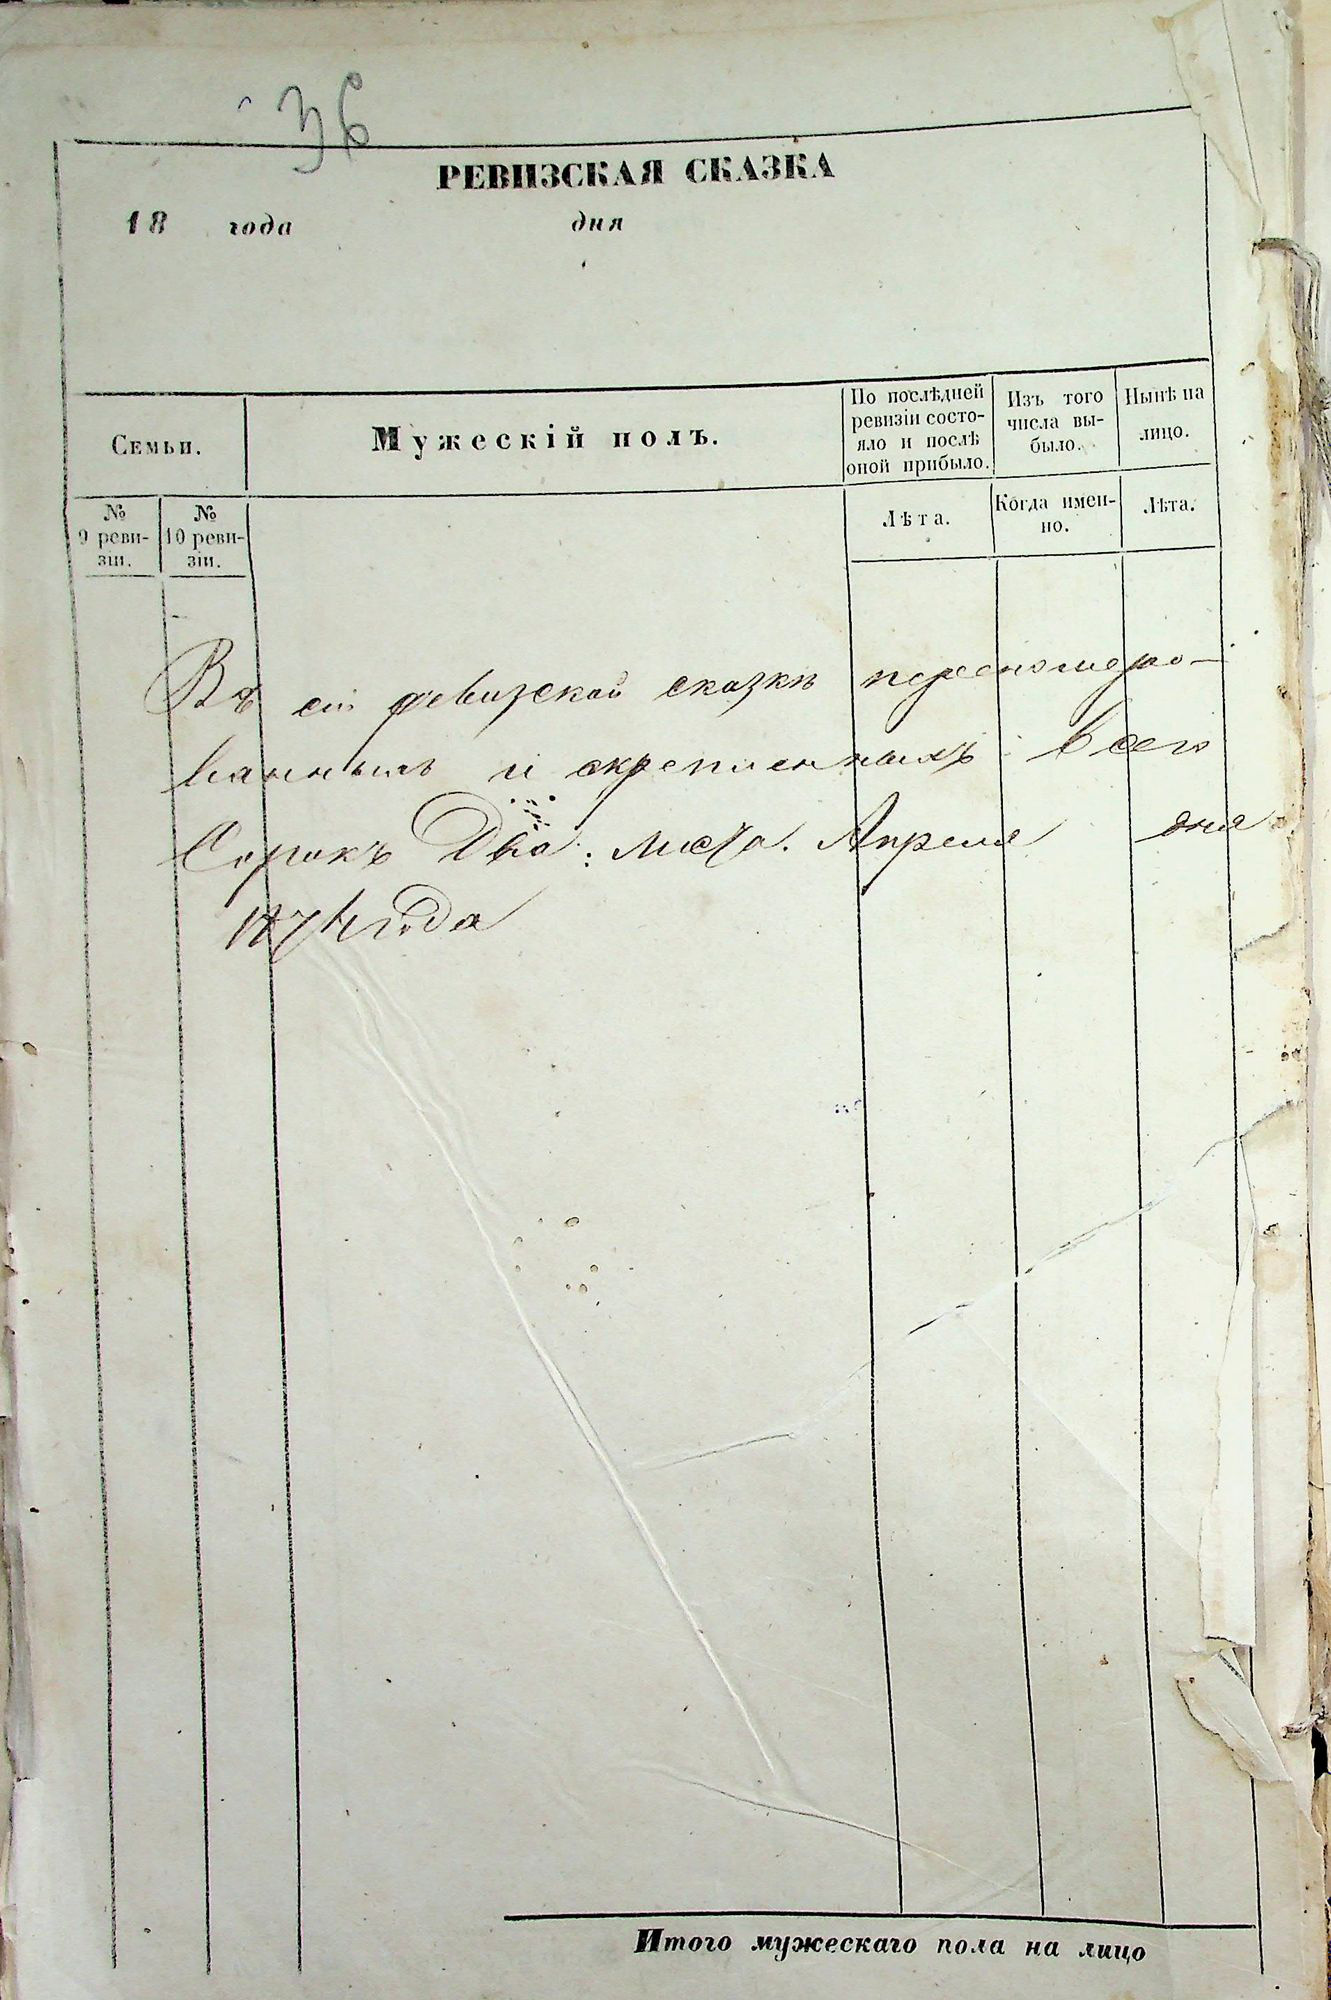 36
РЕВИЗСКАЯ СКАЗКА
18 года дня
Семьи.
Мужескій полъ.
По послѣдней ревизіи состо-
яло и послѣ
оной прибыло.
Изъ того
числа вы-
было.
Нынѣ на
лицо.
№
9 реви-
зіи.
№
10 реви-
зіи.
Лѣта.
Когда имен-
но.
Лѣта.
Въ сей ревизской сказкѣ перенумеро-
ванныхъ и скрепленныхъ всего
Сорокъ Два: листа. Апреля дня
1874 года
Итого мужескаго пола на лицо